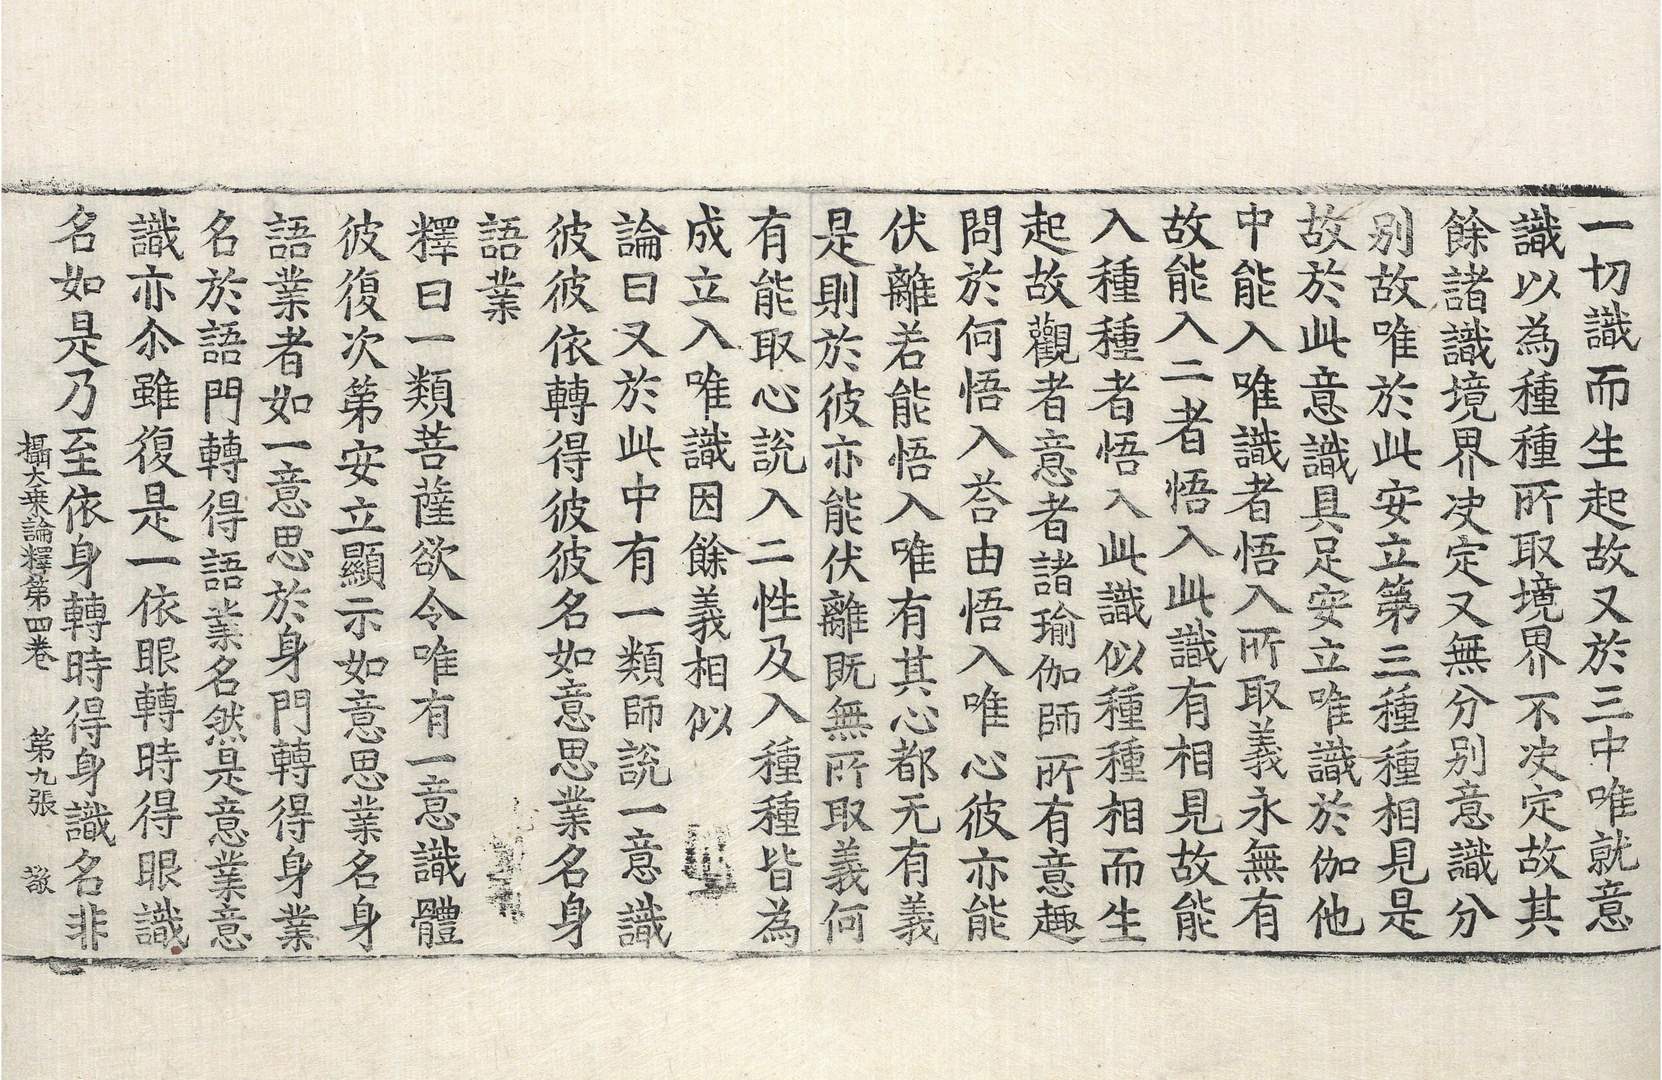 一切識而生起故又於三中唯就意
識以為種種所取境界不决定故其
餘諸識境界决定又無分別意識分
別故唯於此安立第三種種相見是
故於此意識具足安立唯識於伽他
中能入唯識者悟入所取義永無有
故能入二者悟入此識有相見故能
入種種者悟入此識似種種相而生
起故觀者意者諸瑜伽師所有意趣
問於何悟入荅由悟入唯心彼亦能
伏離若能悟入唯有其心都无有義
是則於彼亦能伏離既無所取義何
有能取心說入二性及入種種皆為
成立入唯識因餘義相似
論曰又於此中有一類師說一意識
彼彼依轉得彼彼名如意思業名身
語業
釋曰一類菩薩欲令唯有一意識體
彼復次第安立顯示如意思業名身
語業者如一意思於身門轉得身業
名於語門轉得語業名然是意業意
識亦尒雖復是一依眼轉時得眼識
名如是乃至依身轉時得身識名非
攝大乘論釋第四卷　第九張　敬